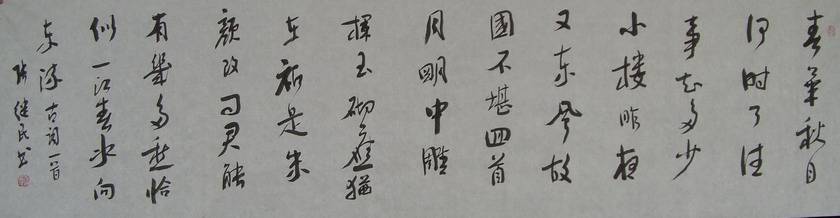 春華秋月
何时了往
事知多少
小楼昨夜
又东风故
國不堪回首
月明中雕
欄玉砌應猶
在祇是朱
颜改问君能
有幾多愁恰
似一江春水向
东流 古词一首
继民书